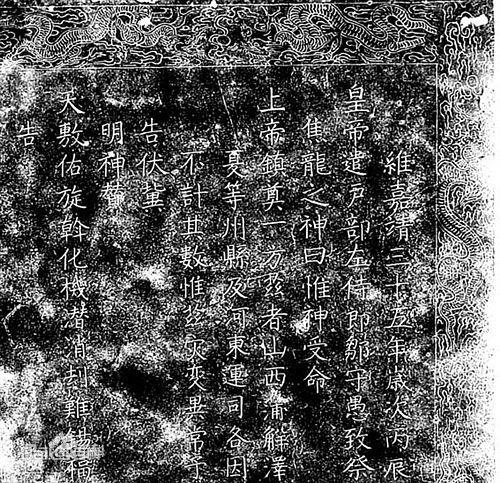 維嘉靖三十五年歲次丙辰
皇帝遣戶部左侍郎鄒守愚致祭
隹龍之神曰惟神受命
上帝鎮奠一方茲者山西蒲解澤
等州縣及河東運司各因
不計其數惟茲灾變異常
告伏冀
明神
大敷佑旋斡化機潛消刦難福
告